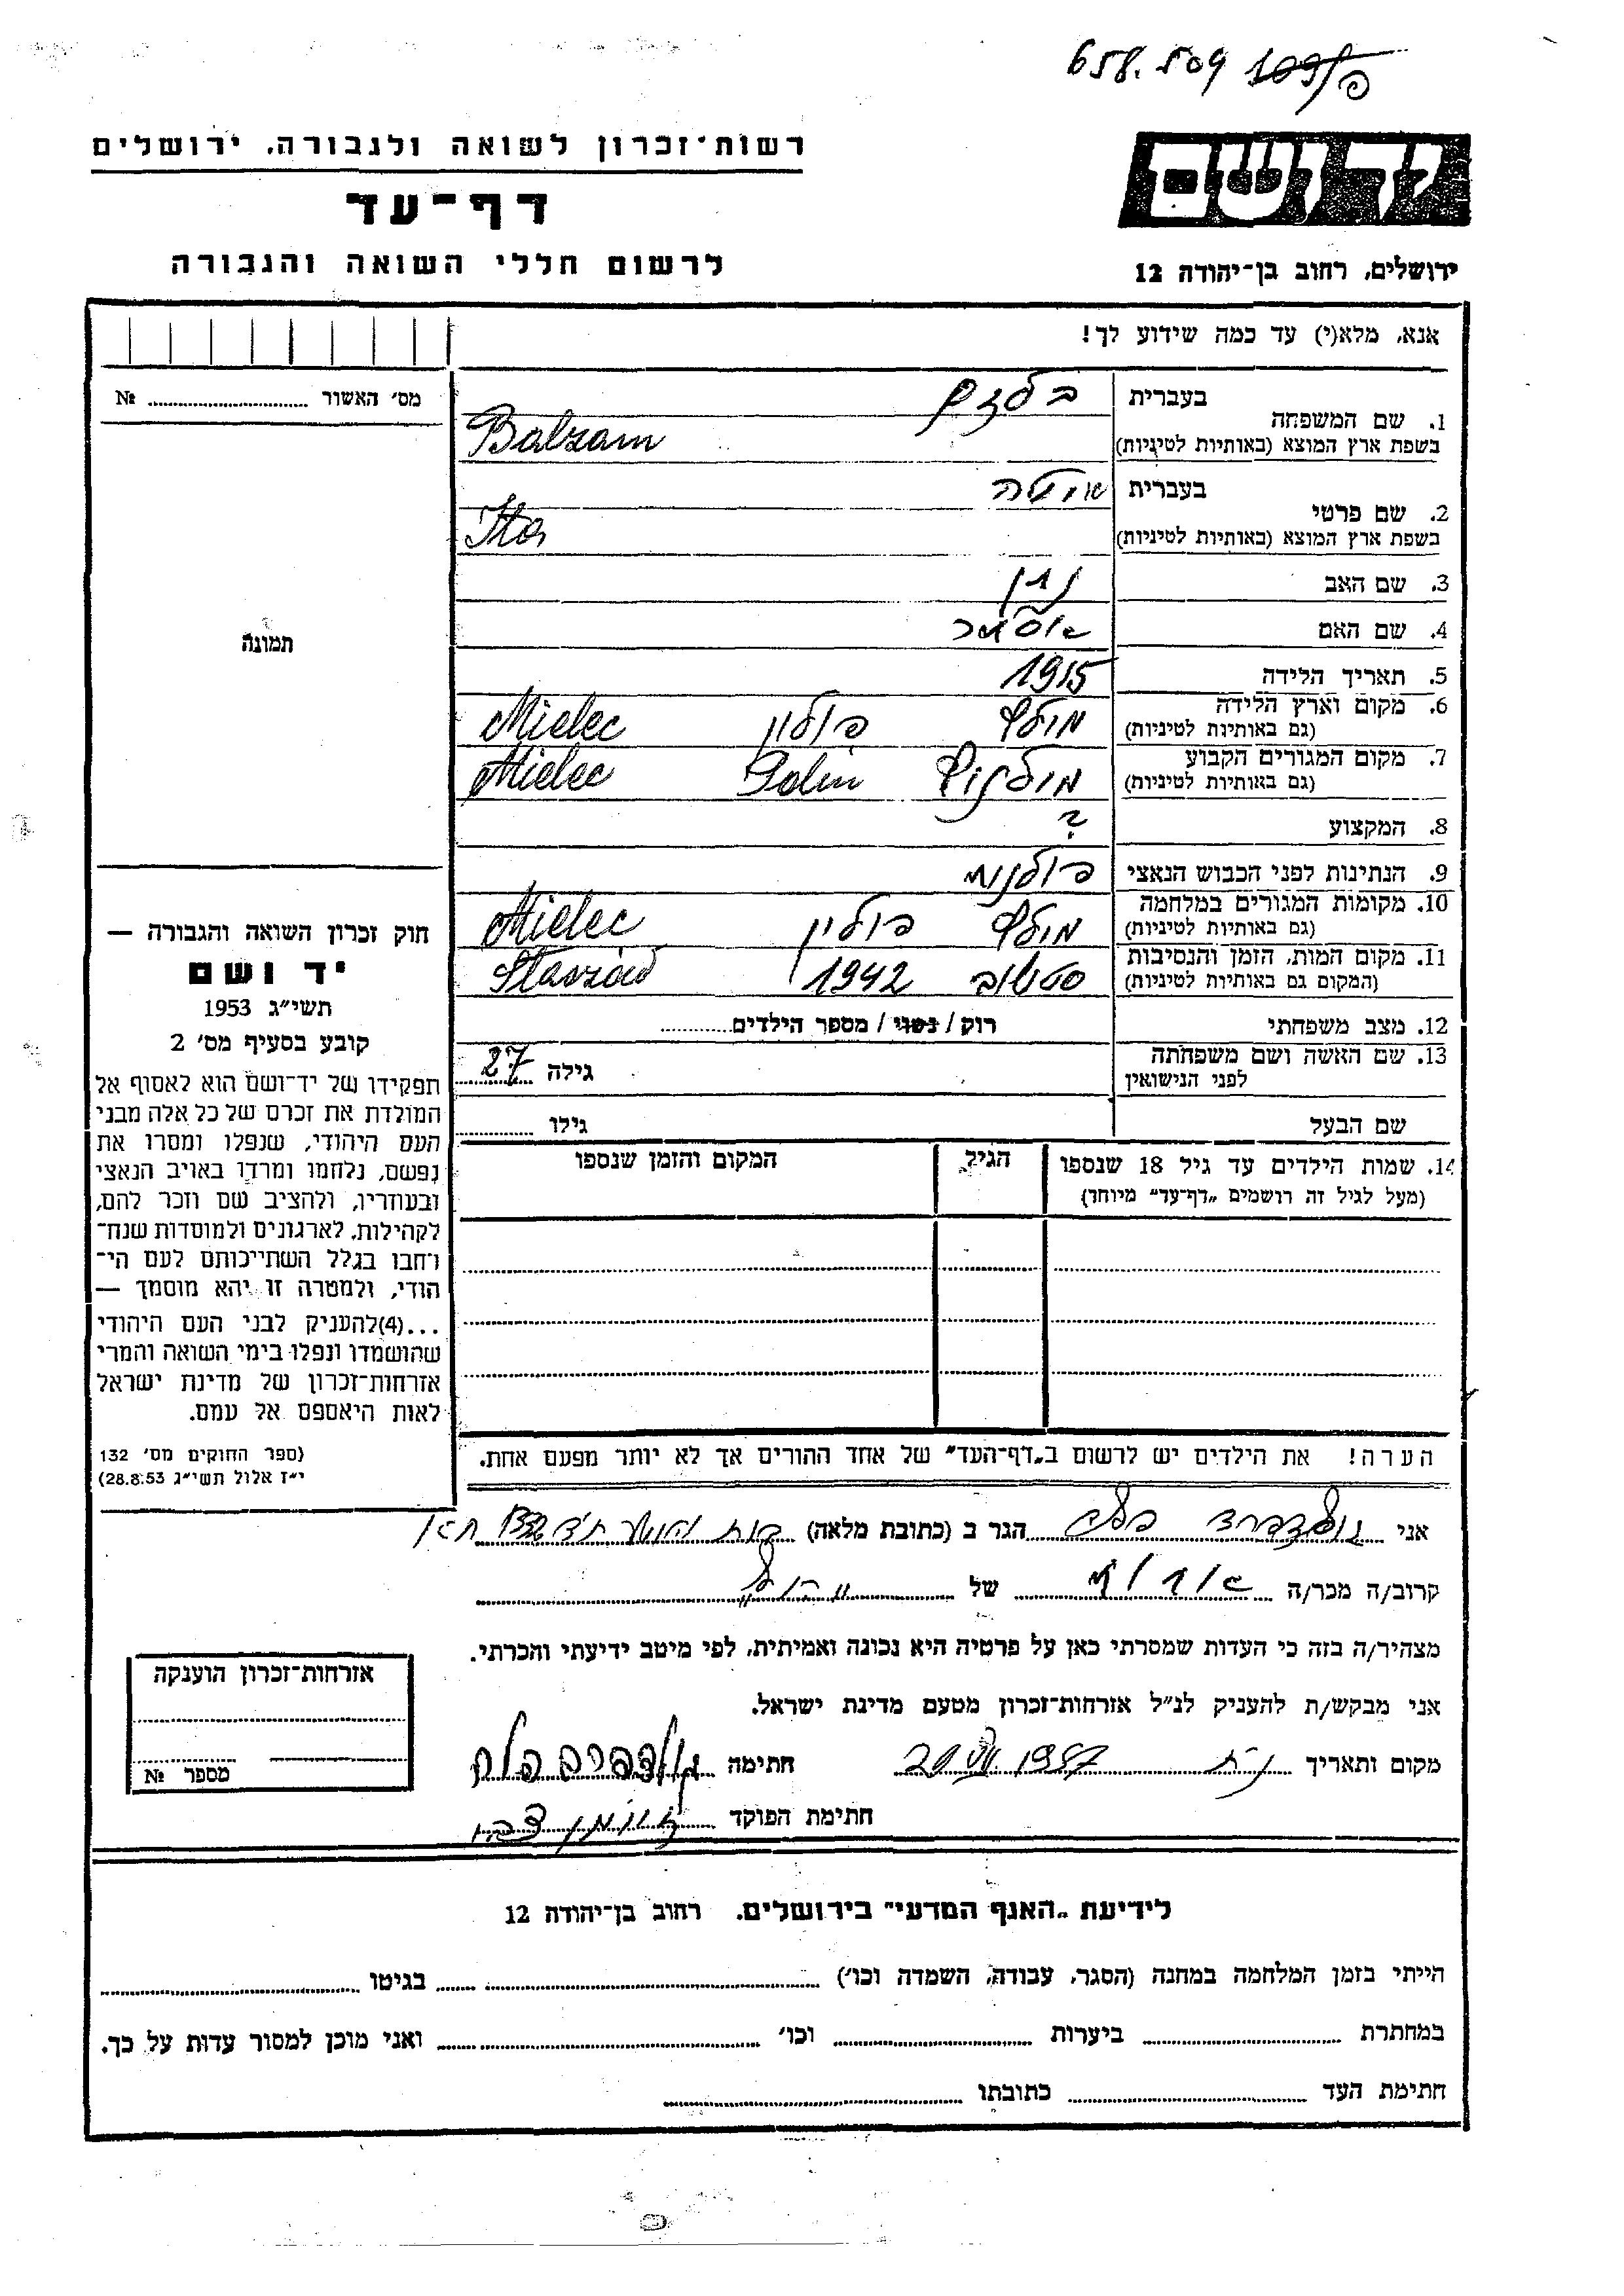 658.509
רשות־זכרון לשואה ולגבורה, ירושלים
יד ושם
דף־עד
לרשום חללי השואה והגבורה
ירושלים, רחוב בן־יהודה 12
אנא, מלא(י) עד כמה שידוע לך!
מס׳ האשור № 
1. שם המשפחה בעברית בלזם
בשפת ארץ המוצא (באותיות לטיניות) Balzam
2. שם פרטי בעברית איטה
בשפת ארץ המוצא (באותיות לטיניות) Ita
3. שם האב נתן
4. שם האם אסתר
תמונה
5. תאריך הלידה 1915
6. מקום וארץ הלידה (גם באותיות לטיניות) מילץ פולין Mielec
7. מקום המגורים הקבוע (גם באותיות לטיניות) Polin Mielec
8. המקצוע ?
9. הנתינות לפני הכבוש הנאצי פולנית
10. מקומות המגורים במלחמה (גם באותיות לטיניות) מילץ פולין Mielec
11. מקום המות, הזמן והנסיבות (המקום גם באותיות לטיניות) 1942
12. מצב משפחתי רוק / נשוי / מספר הילדים
13. שם האשה ושם משפחתה לפני הנישואין גילה 27
שם הבעל גילו
14. שמות הילדים עד גיל 18 שנספו (מעל לגיל זה רושמים „דף־עד״ מיוחד) הגיל המקום והזמן שנספו
חוק זכרון השואה והגבורה —
יד ושם
תשי״ג 1953
קובע בסעיף מס׳ 2
תפקידו של יד־ושם הוא לאסוף אל
המולדת את זכרם של כל אלה מבני
העם היהודי, שנפלו ומסרו את
נפשם, נלחמו ומרדו באויב הנאצי
ובעוזריו, ולהציב שם וזכר להם,
לקהילות, לארגונים ולמוסדות שנח־
רבו בגלל השתייכותם לעם הי־
הודי, ולמטרה זו יהא מוסמך —
...(4)להעניק לבני העם היהודי
שהושמדו ונפלו בימי השואה והמרי
אזרחות־זכרון של מדינת ישראל
לאות היאספם אל עמם.
(ספר החוקים מס׳ 132
י״ז אלול תשי״ג 28.8.53)
הערה! את הילדים יש לרשום ב„דף־העד״ של אחד ההורים אך לא יותר מפעם אחת.
אני הגר ב (כתובת מלאה)
קרוב/ה מכר/ה של
מצהיר/ה בזה כי העדות שמסרתי כאן על פרטיה היא נכונה ואמיתית, לפי מיטב ידיעתי והכרתי.
אני מבקש/ת להעניק לנ״ל אזרחות־זכרון מטעם מדינת ישראל.
מקום ותאריך 1957 חתימה
חתימת הפוקד
אזרחות־זכרון הוענקה
מספר №
לידיעת „האנף המדעי״ בירושלים, רחוב בן־יהודה 12
הייתי בזמן המלחמה במחנה (הסגר, עבודה, השמדה וכו׳) בגיטו
במחתרת ביערות וכו׳ ואני מוכן למסור עדות על כך.
חתימת העד כתובתו